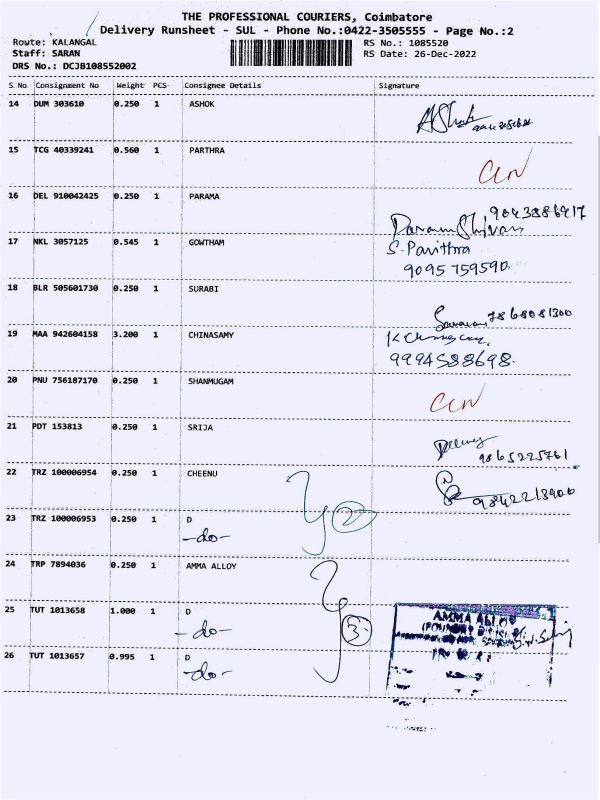 THE PROFESSIONAL COURIERS, Coimbatore
Delivery Runsheet - SUL - Phone No.:0422-3505555 - Page No.:2
Route: KALANGAL RS No.: 1085520
Staff: SARAN RS Date: 26-Dec-2022
DRS No.: DCJB108552002
S.No Consignment No Weight PCS Consignee Details Signature
14 DUM 303610 0.250 1 ASHOK
15 TCG 40339241 0.560 1 PARTHRA
16 DEL 910042425 0.250 1 PARAMA
9043886917
17 NKL 3057125 0.545 1 GOWTHAM S. Pavithra
9095759590
18 BLR 505601730 0.250 1 SURABI
7868081300
19 MAA 942604158 3.200 1 CHINASAMY
9994588698.
20 PNU 756187170 0.250 1 SHANMUGAM
21 PDT 153813 0.250 1 SRIJA
9865225761
22 TRZ 100006954 0.250 1 CHEENU
9842218900
23 TRZ 100006953 0.250 1 D
-do- 2
24 TRP 7894036 0.250 1 AMMA ALLOY
25 TUT 1013658 1.000 1 D
-do- 3
AMMA ALLOY
26 TUT 1013657 0.995 1 D
-do-